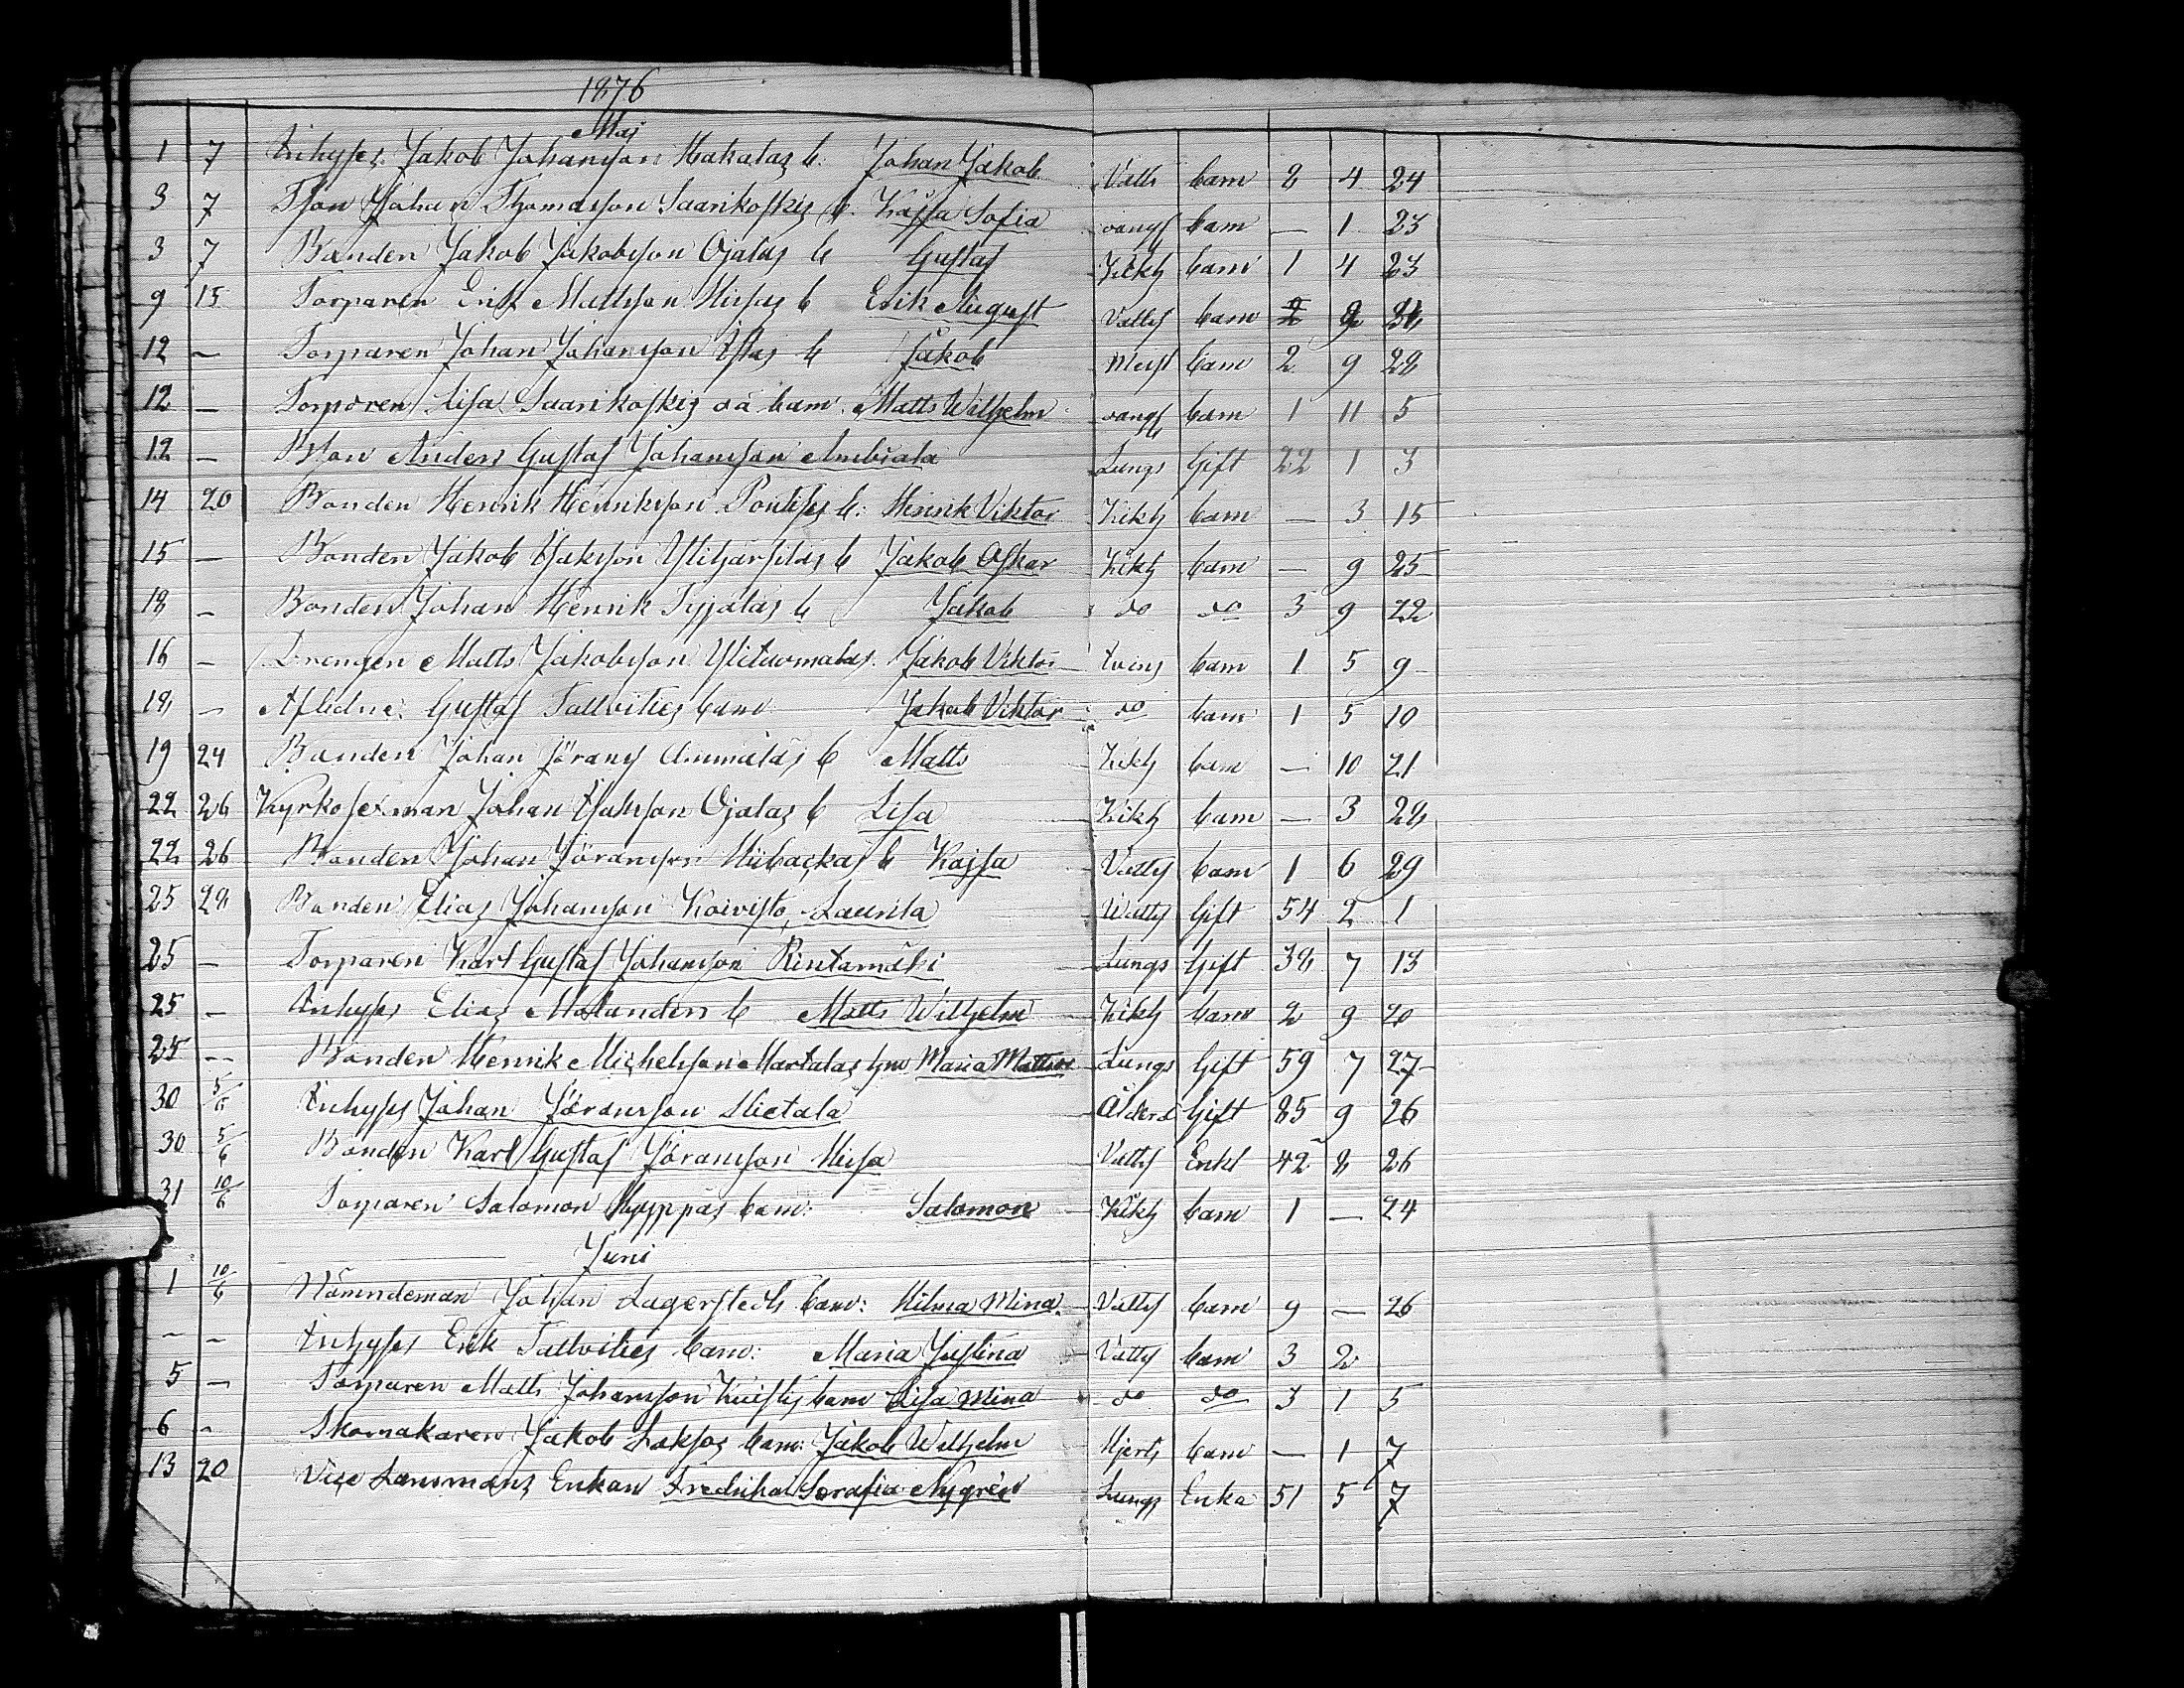 1876
Maj
1 7 Inhyses Jakob Johansson Hakalas b. Johan Jakob Vatts barn 8 4 24
3 7 Tson Johan Thomasson Saarikoskis b. Kajsa Sofia barn — 1 23
3 7 Bonden Jakob Jakobsson Ojalas b Gustaf Kikh barn 1 4 23
9 15 Torparen Erik Mattsson Hissas b Erik August Vatts barn 2 9
12 — Torparen Johan Johansson b Jakob barn 2 9 28
12 — Torparen Lisa Saarikoskis oä barn Matts Wilhelm barn 1 11 5
12 — Bson Anders Gustaf Johansson Ambiala Lungs Gift 22 1 3
14 20 Bonden Henrik Henriksson b: Henrik Viktor Kikh barn — 3 15
15 — Bonden Jakob Isaksson b Jakob Oskar Kikh barn — 9 25
18 — Bonden Johan Henrik b Jakob do do 3 9 22
16 — Drengen Matts Jakobsson Ylituomalas Jakob Viktor barn 1 5 9
18 — Aflidne Gustaf Tallvities barn Jakob Viktor do barn 1 5 10
19 24 Bonden Johan Jörans Ammäläs b Matts Kikh barn — 10 21
22 26 Kyrkosexman Johan Isaksson Ojalas b Lisa Kikh barn — 3 28
22 26 Bonden Johan Jöransson b Kajsa Vatts barn 1 6 29
25 28 Bonden Elias Johansson Koivisto, Laurila Watts Gift 54 2 1
25 — Torparen Karl Gustaf Johansson Rintamäki Lungs Gift 38 7 13
25 — Inhyses Elias Molanders b Matts Wilhelm Kikh barn 2 9 20
25 — Bonden Henrik Michelsson Martalas hu Maria Mattsd Lungs Gift 59 7 27
30 5/6 Inhyses Johan Jöransson Hietala Ålderd Gift 85 9 26
30 5/6 Bonden Karl Gustaf Jöransson Hissa Vatts Enkl 42 8 26
31 10/6 Torparen Salomon Hyyppäs barn: Salomon Kikh barn 1 — 24
Juni
1 10/6 Nämndeman Johan Lagerstedts barn: Hilma Mina Vatts barn 9 — 26
— — Inhyses Erik Tallvities barn: Maria Justina Vatts barn 3 2
5 — Torparen Matts Johansson barn Lisa Mina do do 3 1 5
6 — Skomakaren Jakob Laksos barn: Jakob Wilhelm Hjerts barn — 1 7
13 20 Vice Länsmans Enkan Fredrika Serafia Nygrén Lungs Enka 51 5 7